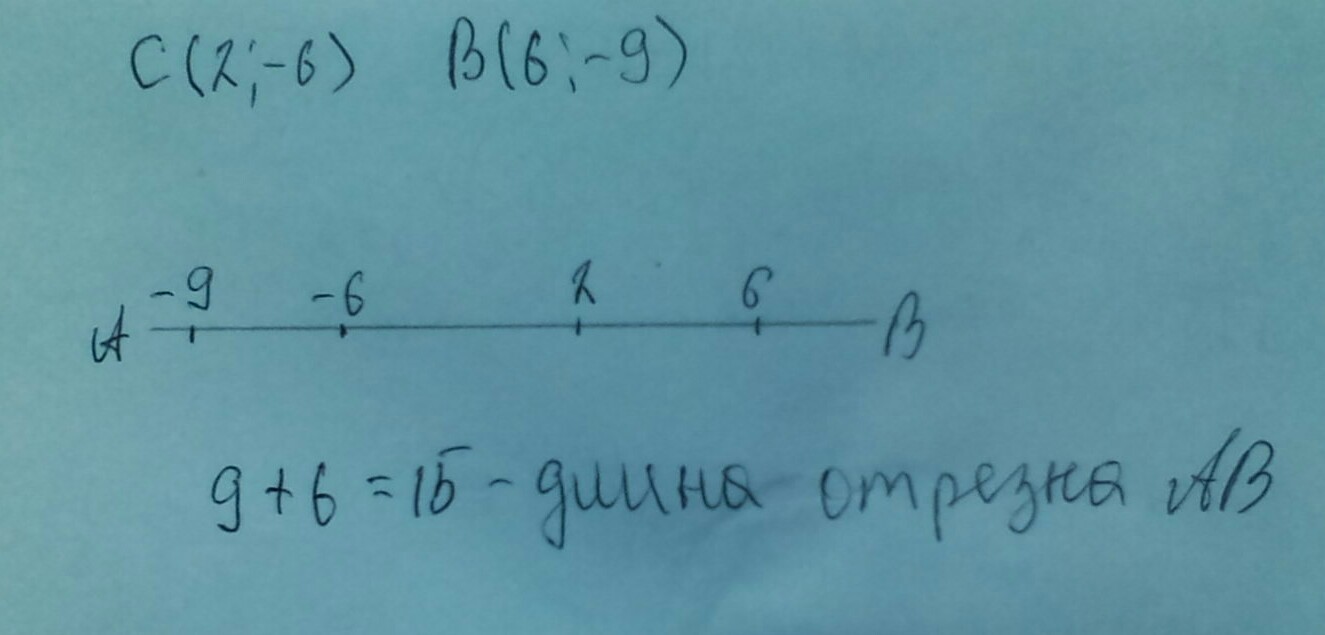 C(2;-6) B(6;-9)
-9 -6 2 6
A B
9+6=15-длина отрезка AB